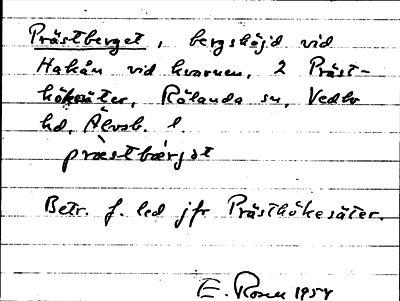 Prästberget, bergshöjd vid
Hakån vid kvarnen, 2 Präst-
hökesäter, Rölanda sn, Vedbo
hd, Älvsb. l.
præstbærgət
Betr. f. led jfr Prästhökesäter.
E. Rosell 1954